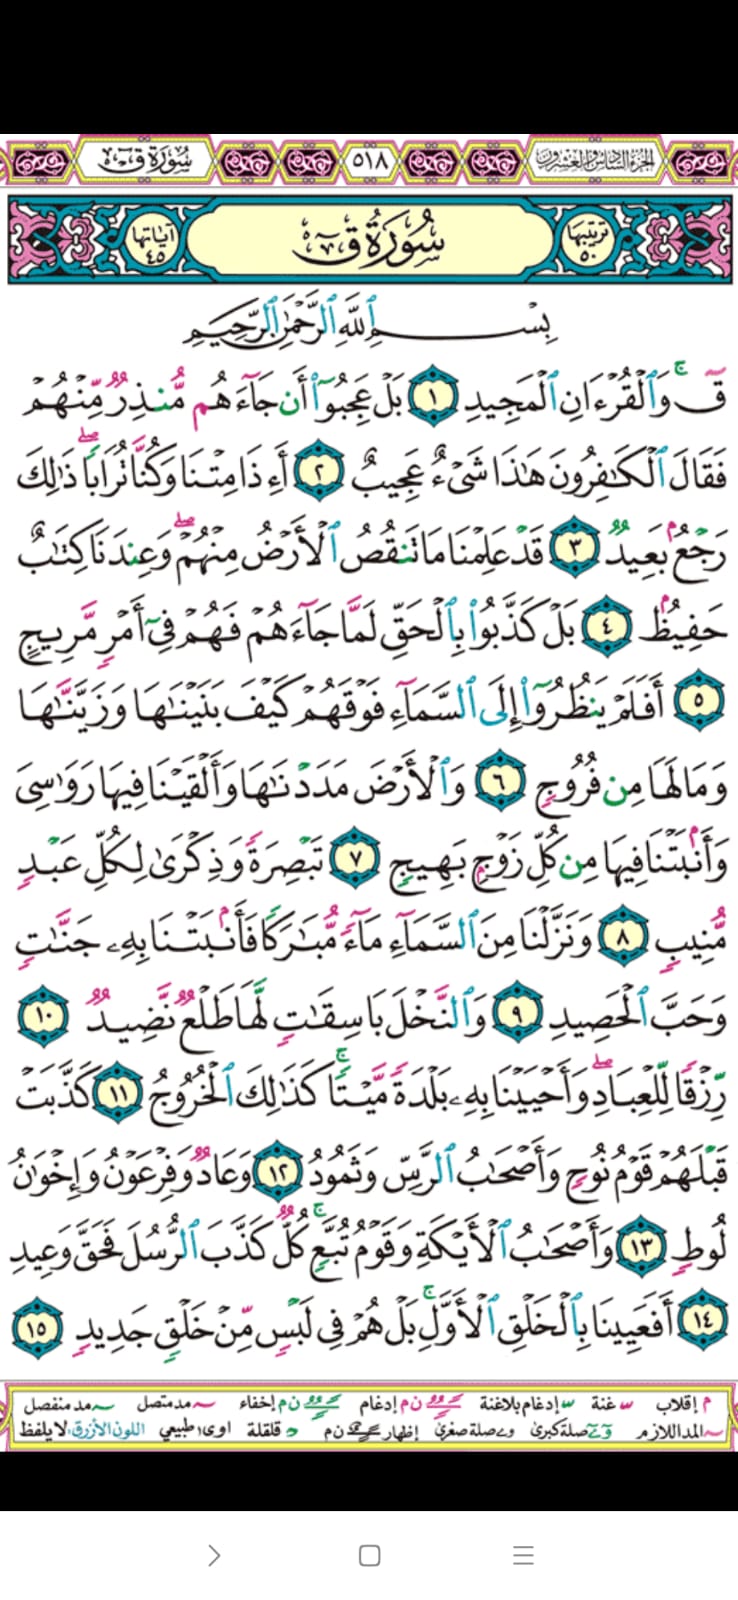 الجزء السادس والعشرون ٥١٨ سُورَةُ قٓ
ترتيبها ٥٠ سُورَةُ قٓ آياتها ٤٥
بِسْمِ ٱللَّهِ ٱلرَّحْمَٰنِ ٱلرَّحِيمِ
قٓ ۚ وَٱلْقُرْءَانِ ٱلْمَجِيدِ ١ بَلْ عَجِبُوٓا۟ أَن جَآءَهُم مُّنذِرٌ مِّنْهُمْ
فَقَالَ ٱلْكَٰفِرُونَ هَٰذَا شَىْءٌ عَجِيبٌ ٢ أَءِذَا مِتْنَا وَكُنَّا تُرَابًا ۖ ذَٰلِكَ
رَجْعٌۢ بَعِيدٌ ٣ قَدْ عَلِمْنَا مَا تَنقُصُ ٱلْأَرْضُ مِنْهُمْ ۖ وَعِندَنَا كِتَٰبٌ
حَفِيظٌۢ ٤ بَلْ كَذَّبُوا۟ بِٱلْحَقِّ لَمَّا جَآءَهُمْ فَهُمْ فِىٓ أَمْرٍ مَّرِيجٍ
٥ أَفَلَمْ يَنظُرُوٓا۟ إِلَى ٱلسَّمَآءِ فَوْقَهُمْ كَيْفَ بَنَيْنَٰهَا وَزَيَّنَّٰهَا
وَمَا لَهَا مِن فُرُوجٍ ٦ وَٱلْأَرْضَ مَدَدْنَٰهَا وَأَلْقَيْنَا فِيهَا رَوَٰسِىَ
وَأَنۢبَتْنَا فِيهَا مِن كُلِّ زَوْجٍۭ بَهِيجٍ ٧ تَبْصِرَةً وَذِكْرَىٰ لِكُلِّ عَبْدٍ
مُّنِيبٍ ٨ وَنَزَّلْنَا مِنَ ٱلسَّمَآءِ مَآءً مُّبَٰرَكًا فَأَنۢبَتْنَا بِهِۦ جَنَّٰتٍ
وَحَبَّ ٱلْحَصِيدِ ٩ وَٱلنَّخْلَ بَاسِقَٰتٍ لَّهَا طَلْعٌ نَّضِيدٌ ١٠
رِّزْقًا لِّلْعِبَادِ ۖ وَأَحْيَيْنَا بِهِۦ بَلْدَةً مَّيْتًا ۚ كَذَٰلِكَ ٱلْخُرُوجُ ١١ كَذَّبَتْ
قَبْلَهُمْ قَوْمُ نُوحٍ وَأَصْحَٰبُ ٱلرَّسِّ وَثَمُودُ ١٢ وَعَادٌ وَفِرْعَوْنُ وَإِخْوَٰنُ
لُوطٍ ١٣ وَأَصْحَٰبُ ٱلْأَيْكَةِ وَقَوْمُ تُبَّعٍ ۚ كُلٌّ كَذَّبَ ٱلرُّسُلَ فَحَقَّ وَعِيدِ
١٤ أَفَعَيِينَا بِٱلْخَلْقِ ٱلْأَوَّلِ ۚ بَلْ هُمْ فِى لَبْسٍ مِّنْ خَلْقٍ جَدِيدٍ ١٥
م إقلاب غنة إدغام بلاغنة ن م إدغام ن م إخفاء مد متصل مد منفصل
المد اللازم صلة كبرى صلة صغرى إظهار ن م قلقلة اوى طبيعي اللون الأزرق: لا يلفظ